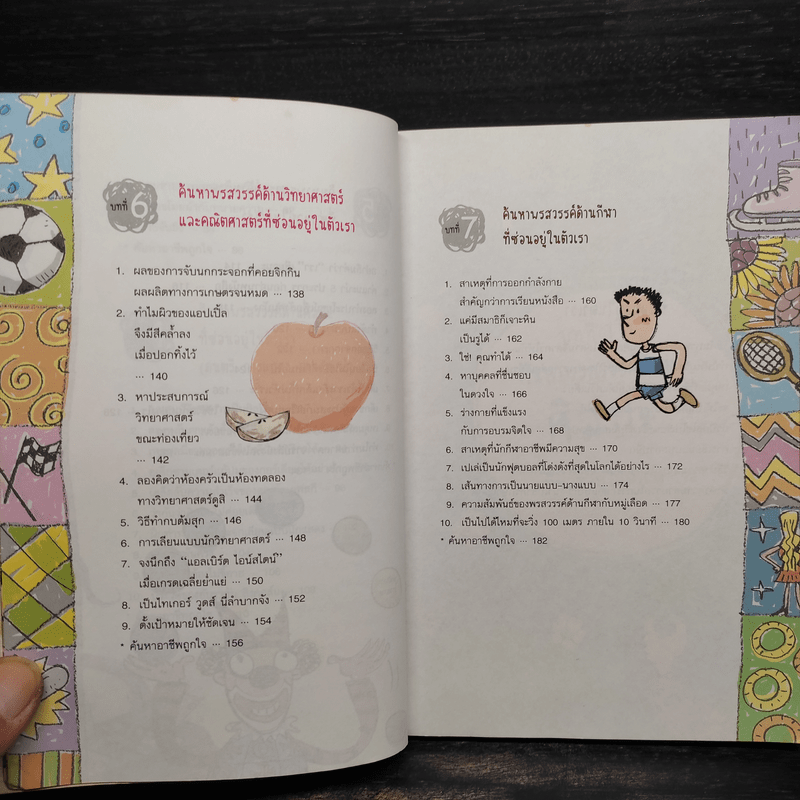 บทที่ 6
ค้นหาพรสวรรค์ด้านวิทยาศาสตร์
และคณิตศาสตร์ที่ซ่อนอยู่ในตัวเรา
1. ผลของการจับนกกระจอกที่คอยจิกกิน
ผลผลิตทางการเกษตรจนหมด ··· 138
2. ทำไมผิวของแอปเปิ้ล
จึงมีสีคล้ำลง
เมื่อปอกทิ้งไว้
··· 140
3. หาประสบการณ์
วิทยาศาสตร์
ขณะท่องเที่ยว
··· 142
4. ลองคิดว่าห้องครัวเป็นห้องทดลอง
ทางวิทยาศาสตร์ดูสิ ··· 144
5. วิธีทำกบต้มสุก ··· 146
6. การเลียนแบบนักวิทยาศาสตร์ ··· 148
7. จงนึกถึง “แอลเบิร์ต ไอน์สไตน์”
เมื่อเกรดเฉลี่ยย่ำแย่ ··· 150
8. เป็นไทเกอร์ วูดส์ นี่ลำบากจัง ··· 152
9. ตั้งเป้าหมายให้ชัดเจน ··· 154
* ค้นหาอาชีพถูกใจ ··· 156
บทที่ 7
ค้นหาพรสวรรค์ด้านกีฬา
ที่ซ่อนอยู่ในตัวเรา
1. สาเหตุที่การออกกำลังกาย
สำคัญกว่าการเรียนหนังสือ ··· 160
2. แค่มีสมาธิก็เจาะหิน
เป็นรูได้ ··· 162
3. ใช่! คุณทำได้ ··· 164
4. หาบุคคลที่ชื่นชอบ
ในดวงใจ ··· 166
5. ร่างกายที่แข็งแรง
กับการอบรมจิตใจ ··· 168
6. สาเหตุที่นักกีฬาอาชีพมีความสุข ··· 170
7. เปเล่เป็นนักฟุตบอลที่โด่งดังที่สุดในโลกได้อย่างไร ··· 172
8. เส้นทางการเป็นนายแบบ-นางแบบ ··· 174
9. ความสัมพันธ์ของพรสวรรค์ด้านกีฬากับหมู่เลือด ··· 177
10. เป็นไปได้ไหมที่จะวิ่ง 100 เมตร ภายใน 10 วินาที ··· 180
* ค้นหาอาชีพถูกใจ ··· 182